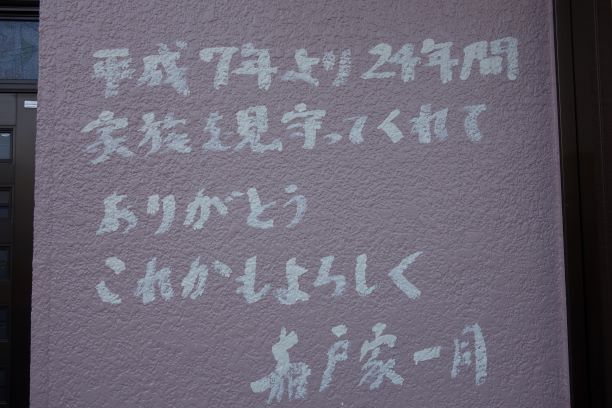 平成7年より24年間
家族を見守ってくれて
ありがとう
これかもよろしく
嘉戸家一同